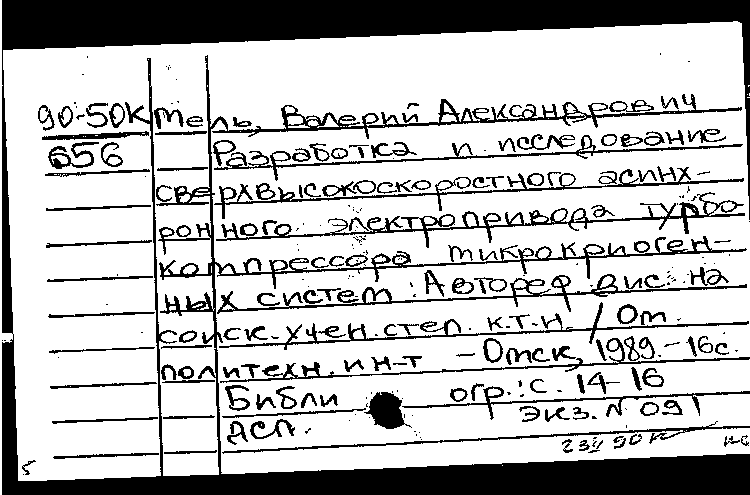 90-50К Тель, Валерий Александрович
656 Разработка и исследование
сверхвысокоскоростного асинх-
ронного электропривода турбо-
компрессора микрокриоген-
ных систем : Автореф. дис. на
соиск. учен. степ. к.т.н. / Ом.
политехн. ин-т - Омск, 1989. - 16с.
Библиогр.: с. 14-16
ДСП. Экз. N 091
5